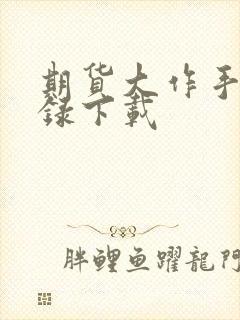 期货大作手
录下载
胖鲤鱼躍龍門